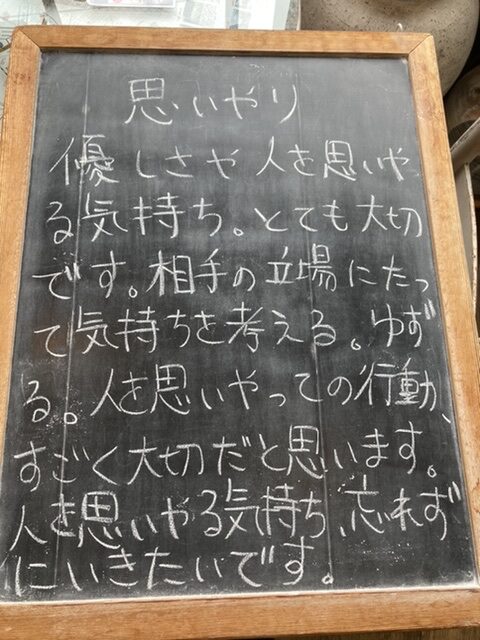 思いやり
優しさや人を思いや
る気持ち。とても大切
です。相手の立場にたっ
て気持ちを考える。ゆず
る。人を思いやっての行動、
すごく大切だと思います。
人を思いやる気持ち、忘れず
にいきたいです。